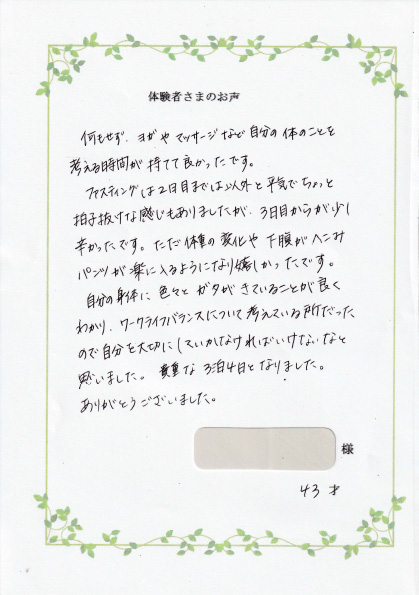 体験者さまのお声
何もせず、ヨガやマッサージなど自分の体のことを
考える時間が持てて良かったです。
ファスティングは2日目までは以外と平気でちょっと
拍子抜けな感じもありましたが、3日目からが少し
辛かったです。ただ体重の変化や下腹がヘこみ
パンツが楽に入るようになり嬉しかったです。
自分の身体に色々とガタがきていることが良く
わかり、ワークライフバランスについて考えている所だった
ので自分を大切にしていかなければいけないなと
思いました。貴重な3泊4日となりました。
ありがとうございました。
様
43才